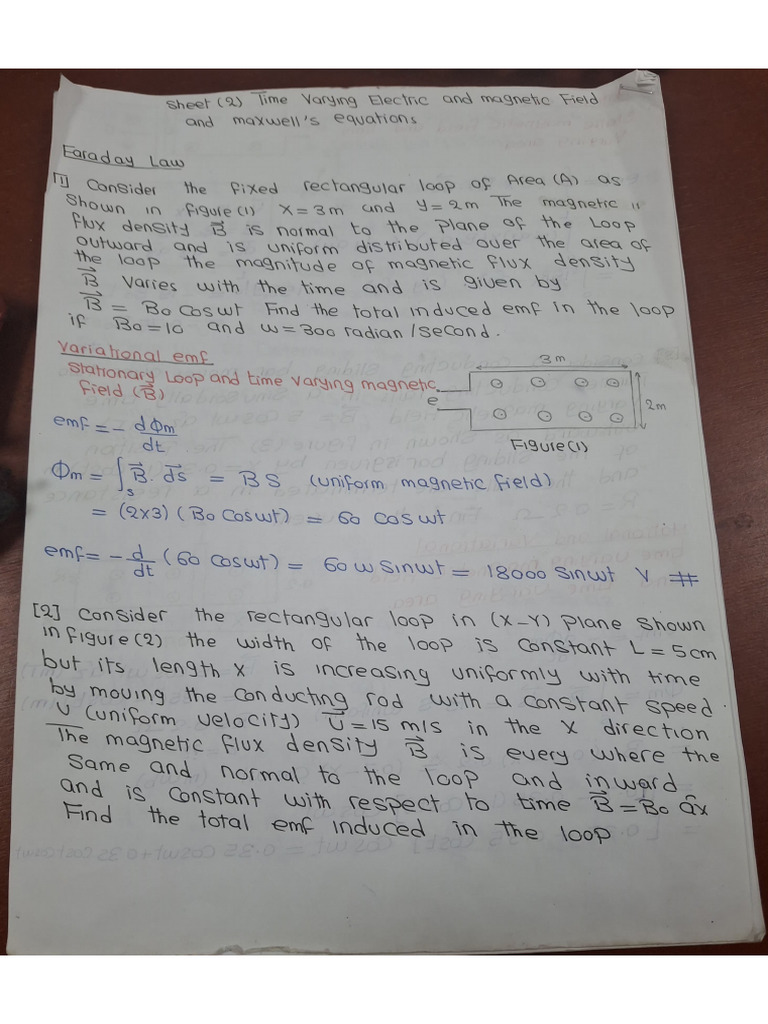 Sheet (2) Time Varying Electric and magnetic Field
and maxwell's equations
Faraday Law
[1] Consider the fixed rectangular loop of Area (A) as
Shown in figure (1) X=3m and Y=2m The magnetic
flux density B⃗ is normal to the plane of the Loop
outward and is uniform distributed over the area of
the loop the magnitude of magnetic flux density
B⃗ Varies with the time and is given by
B⃗ = Bo Coswt Find the total induced emf in the loop
if Bo=10 and w=300 radian/second.
Variational emf
Stationary Loop and time varying magnetic
Field (B⃗)
3m
e
2m
Figure (1)
emf = - dΦm/dt
Φm = ∫s B⃗. ds⃗ = BS (uniform magnetic field)
= (2x3) (Bo Coswt) = 60 coswt
emf = - d/dt (60 coswt) = 60 w Sinwt = 18000 Sinwt V #
[2] Consider the rectangular loop in (X-Y) plane shown
in figure (2) the width of the loop is constant L = 5cm
but its length X is increasing uniformly with time
by moving the conducting rod with a constant speed
U (uniform velocity) U⃗ = 15 m/s in the X direction
The magnetic flux density B⃗ is every where the
same and normal to the loop and inward
and is constant with respect to time B⃗ = Bo âx
Find the total emf induced in the loop